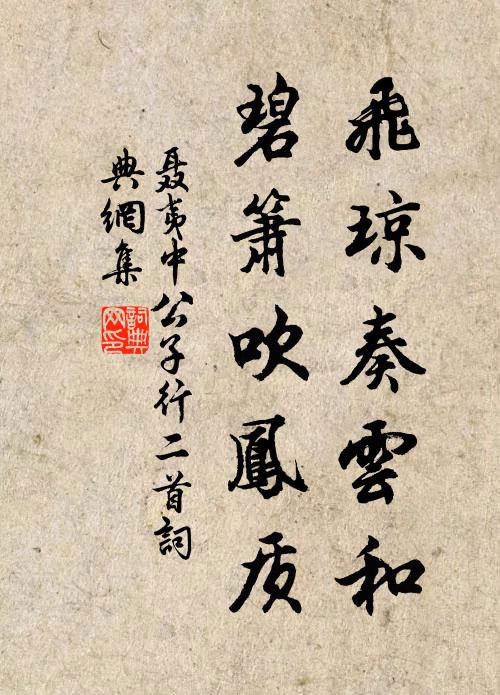 飛琼奏雲和
碧簫吹鳳质
聂夷中公子行二首詞
典網集
詞典网印